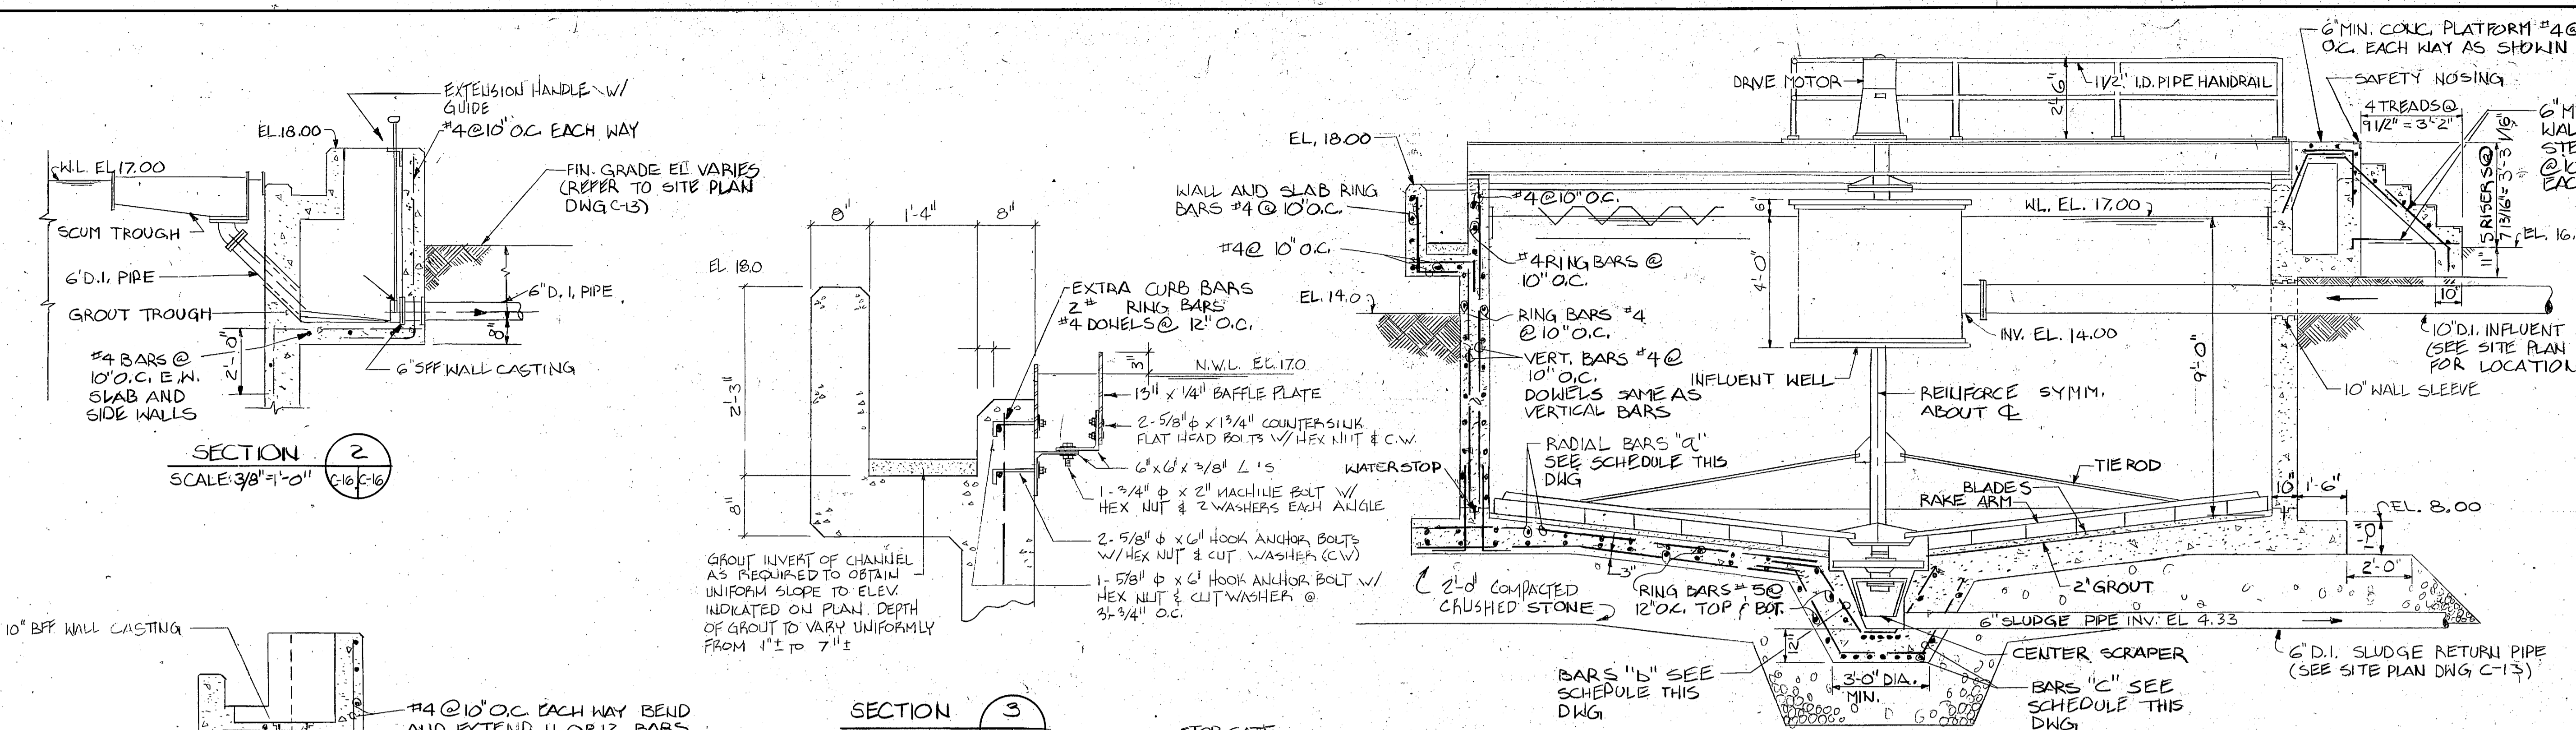 EXTENSION HANDLE W/
GUIDE
#4@10" O.C. EACH WAY
EL.18.00
W.L. EL 17.00
FIN. GRADE EL. VARIES
(REFER TO SITE PLAN
DWG C-13)
SCUM TROUGH
6" D.I. PIPE
GROUT TROUGH
6" D.I. PIPE
8"
#4 BARS @
10" O.C. E.W.
SLAB AND
SIDE WALLS
2'-0"
6" SFF WALL CASTING
SECTION 2
SCALE: 3/8"=1'-0" C-16 C-16
10" BFF WALL CASTING
#4@10" O.C. EACH WAY BEND
8" 1'-4" 8"
EL 18.0
2'-3"
8"
EXTRA CURB BARS
2 # RING BARS
#4 DOWELS @ 12" O.C.
3"
N.W.L. EL.17.0
13" x 1/4" BAFFLE PLATE
2-5/8" φ x 1 3/4" COUNTERSINK
FLAT HEAD BOLTS W/ HEX NUT & C.W.
6" x 6" x 3/8" L'S
1-3/4" φ x 2" MACHINE BOLT W/
HEX NUT & 2 WASHERS EACH ANGLE
2-5/8" φ x 6" HOOK ANCHOR BOLTS
W/HEX NUT & CUT WASHER (CW)
1-5/8" φ x 6" HOOK ANCHOR BOLT W/
HEX NUT & CUT WASHER @
3'-3/4" O.C.
GROUT INVERT OF CHANNEL
AS REQUIRED TO OBTAIN
UNIFORM SLOPE TO ELEV.
INDICATED ON PLAN. DEPTH
OF GROUT TO VARY UNIFORMLY
FROM 1"± TO 7"±
SECTION 3
DRIVE MOTOR
2'-6"
1 1/2" I.D. PIPE HANDRAIL
6" MIN. CONC. PLATFORM #4@
O.C. EACH WAY AS SHOWN
SAFETY NOSING
4 TREADS@
9 1/2" = 3'-2"
5 RISERS@
7 13/16" = 3'-3 1/16"
11"
10"
EL. 18.00
WALL AND SLAB RING
BARS #4 @ 10" O.C.
#4@ 10" O.C.
EL. 14.0
#4@10" O.C.
#4 RING BARS @
10" O.C.
RING BARS #4
@ 10" O.C.
VERT. BARS #4 @
10" O.C.
DOWELS SAME AS
VERTICAL BARS
6"
4'-0"
WL. EL. 17.00
INV. EL. 14.00
INFLUENT WELL
REINFORCE SYMM.
ABOUT ℄
9'-0"
10" D.I. INFLUENT
(SEE SITE PLAN
FOR LOCATION
10" WALL SLEEVE
RADIAL BARS "a"
SEE SCHEDULE THIS
DWG
WATERSTOP
TIE ROD
BLADES
RAKE ARM
10" 1'-6"
EL. 8.00
2'-0"
2'-0" COMPACTED
CRUSHED STONE
3"
RING BARS #5@
12" O.C. TOP & BOT.
2" GROUT
6" SLUDGE PIPE INV. EL 4.33
12"
CENTER SCRAPER
6" D.I. SLUDGE RETURN PIPE
(SEE SITE PLAN DWG C-13)
BARS "b" SEE
SCHEDULE THIS
DWG
3'-0" DIA.
MIN.
BARS "C" SEE
SCHEDULE THIS
DWG